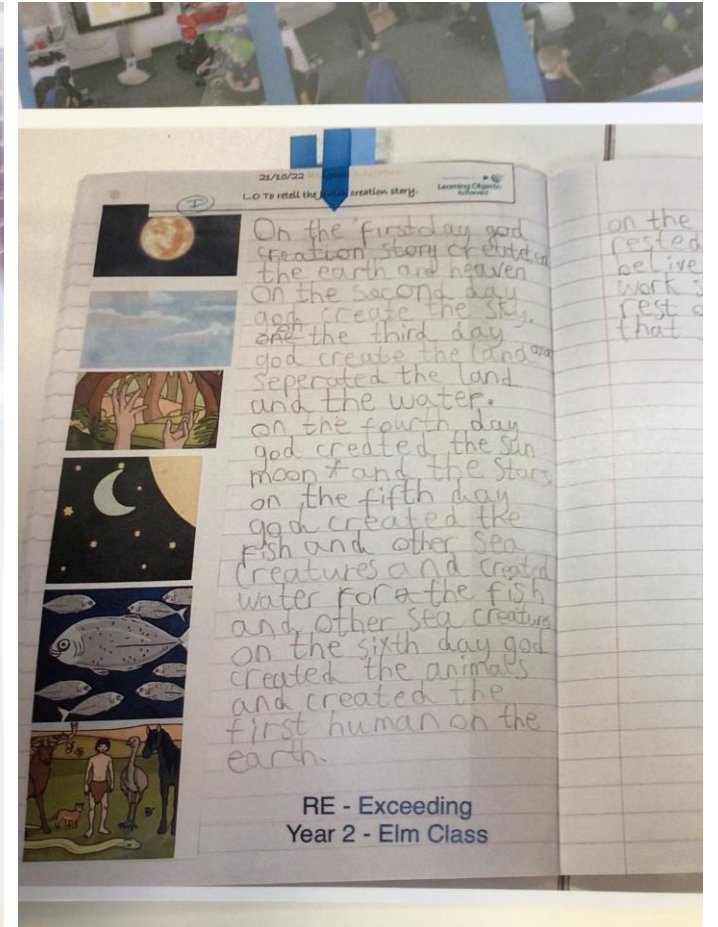 21/10/22
L.O To retell the Jewish creation story.
Learning Objective
Achieved
I
On the first day god
creation story created
the earth and heaven
On the second day
god create the sky.
the third day
god create the land
seperated the land
and the water.
on the fourth day
god created the sun
moon and the stars
on the fifth day
god created the
fish and other sea
creatures and created
water for the fish
and other sea creatures
on the sixth day god
created the animals
and created the
first human on the
earth.
RE - Exceeding
Year 2 - Elm Class
on the
rested
belive
work s
rest
that